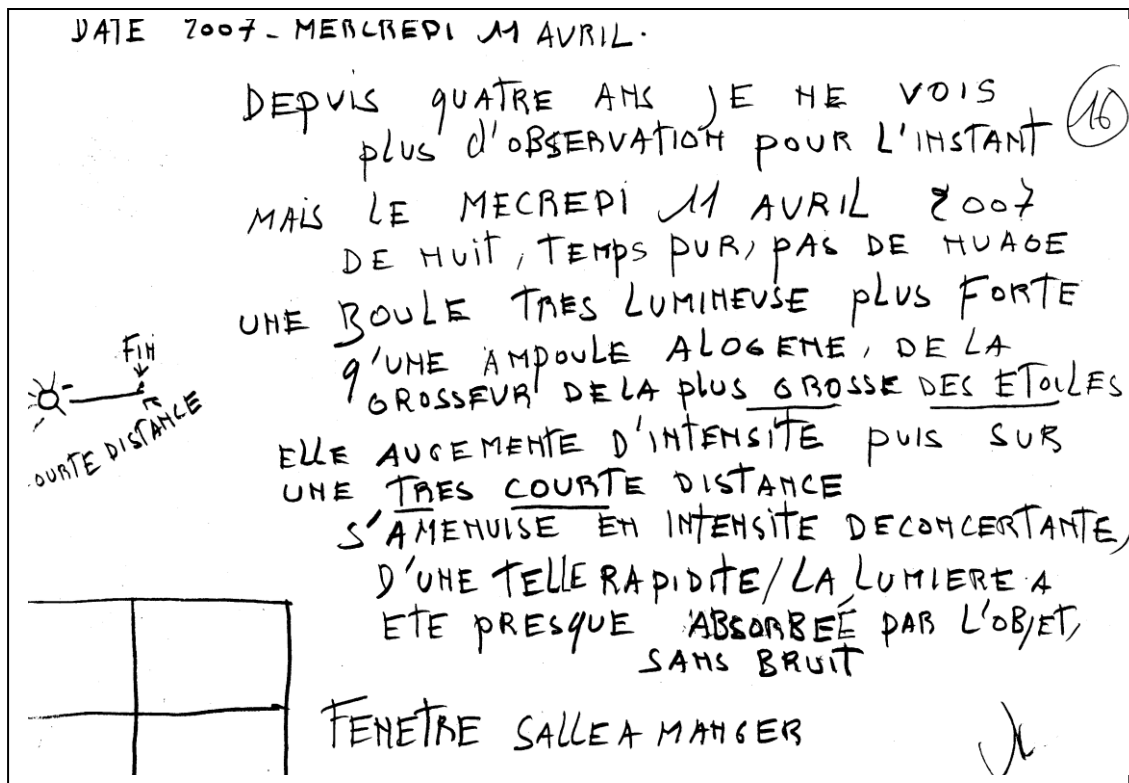 DATE 2007 - MERCREDI 11 AVRIL.
DEPUIS QUATRE ANS JE NE VOIS
PLUS D'OBSERVATION POUR L'INSTANT
16
MAIS LE MECREDI 11 AVRIL 2007
DE NUIT, TEMPS PUR, PAS DE NUAGE
UNE BOULE TRES LUMINEUSE PLUS FORTE
Q'UNE AMPOULE ALOGENE, DE LA
GROSSEUR DE LA PLUS GROSSE DES ETOILES
FIN
OURTE DISTANCE
ELLE AUGEMENTE D'INTENSITE PUIS SUR
UNE TRES COURTE DISTANCE
S'AMENUISE EN INTENSITE DECONCERTANTE,
D'UNE TELLE RAPIDITE/LA LUMIERE A
ETE PRESQUE ABSORBEÉ PAR L'OBJET,
SANS BRUIT
FENETRE SALLE A MANGER